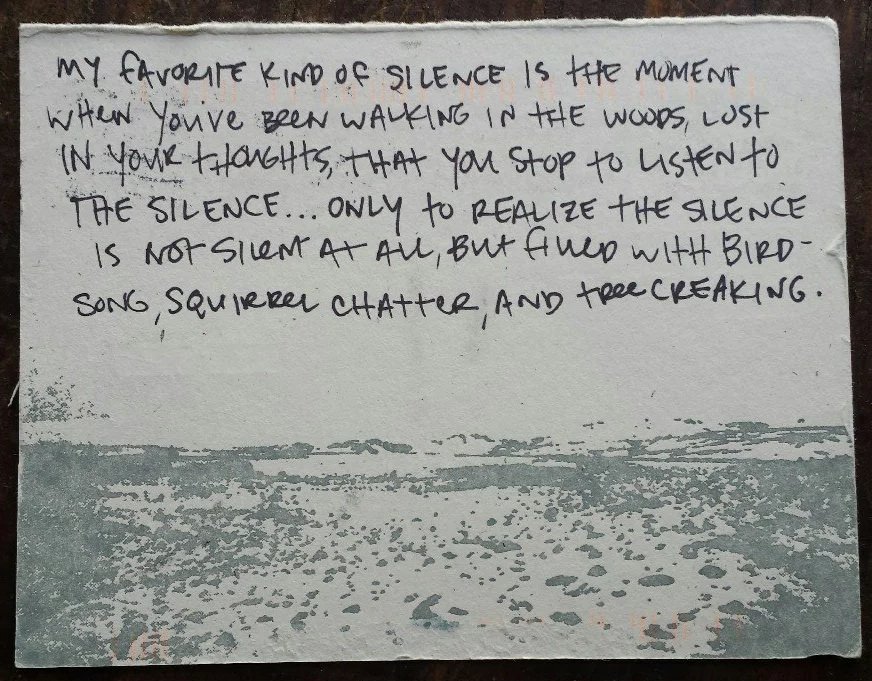 MY FAVORITE KIND OF SILENCE IS THE MOMENT
WHEN YOU'VE BEEN WALKING IN THE WOODS, LOST
IN YOUR THOUGHTS, THAT YOU STOP TO LISTEN TO
THE SILENCE... ONLY TO REALIZE THE SILENCE
IS NOT SILENT AT ALL, BUT FILLED WITH BIRD-
SONG, SQUIRREL CHATTER, AND TREE CREAKING.